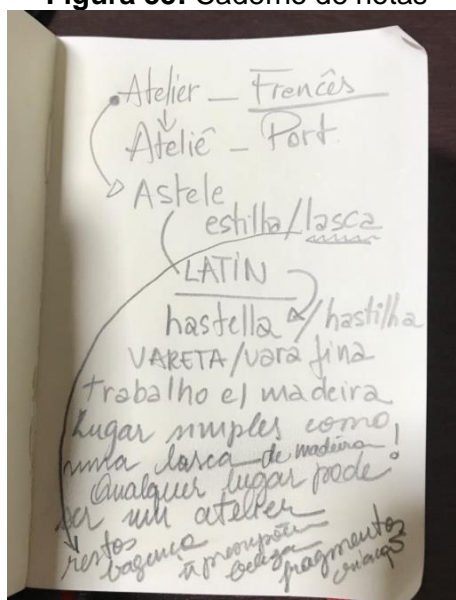 Figura 33: Caderno de notas
Atelier — Francês
Ateliê — Port.
Astele
estilha/lasca
LATIN
hastella / hastilha
VARETA/vara fina
trabalho c/ madeira
Lugar simples como
uma lasca de madeira!
Qualquer lugar pode
ser um atelier
restos
bagunça
ñ preocupação
beleza
fragmentos
criança